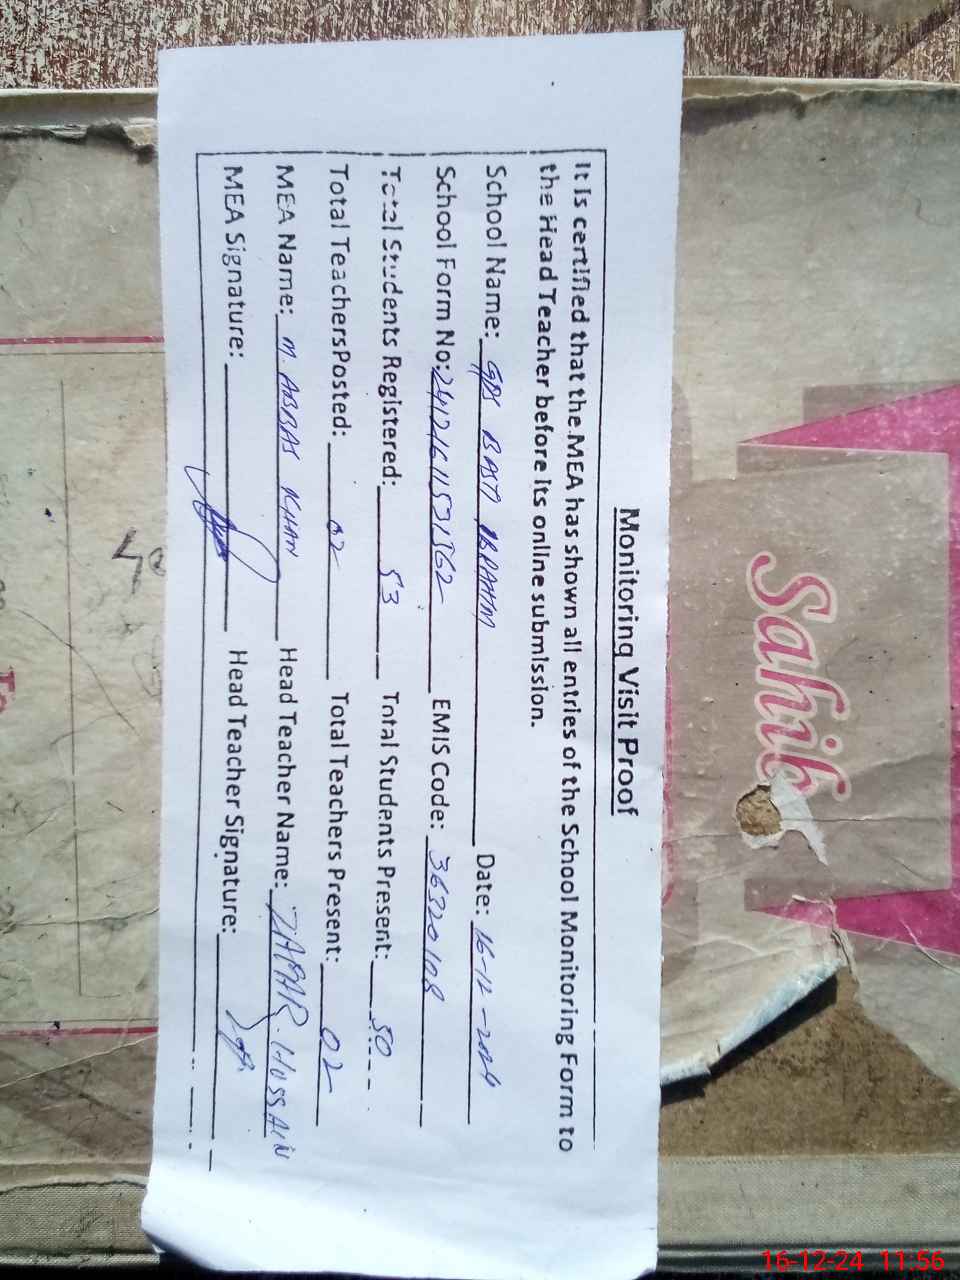 Monitoring Visit Proof
It is certified that the MEA has shown all entries of the School Monitoring Form to
the Head Teacher before its online submission.
School Name: GPS BASTI IBRAHIM Date: 16-12-2024
School Form No: 241216115731362 EMIS Code: 36320108
Total Students Registered: 53 Total Students Present: 50
Total TeachersPosted: 02 Total Teachers Present: 02
MEA Name: M. ABBAS KHAN Head Teacher Name: ZAFAR. HUSSAIN
MEA Signature: Head Teacher Signature:
Sahib
16-12-24 11:56